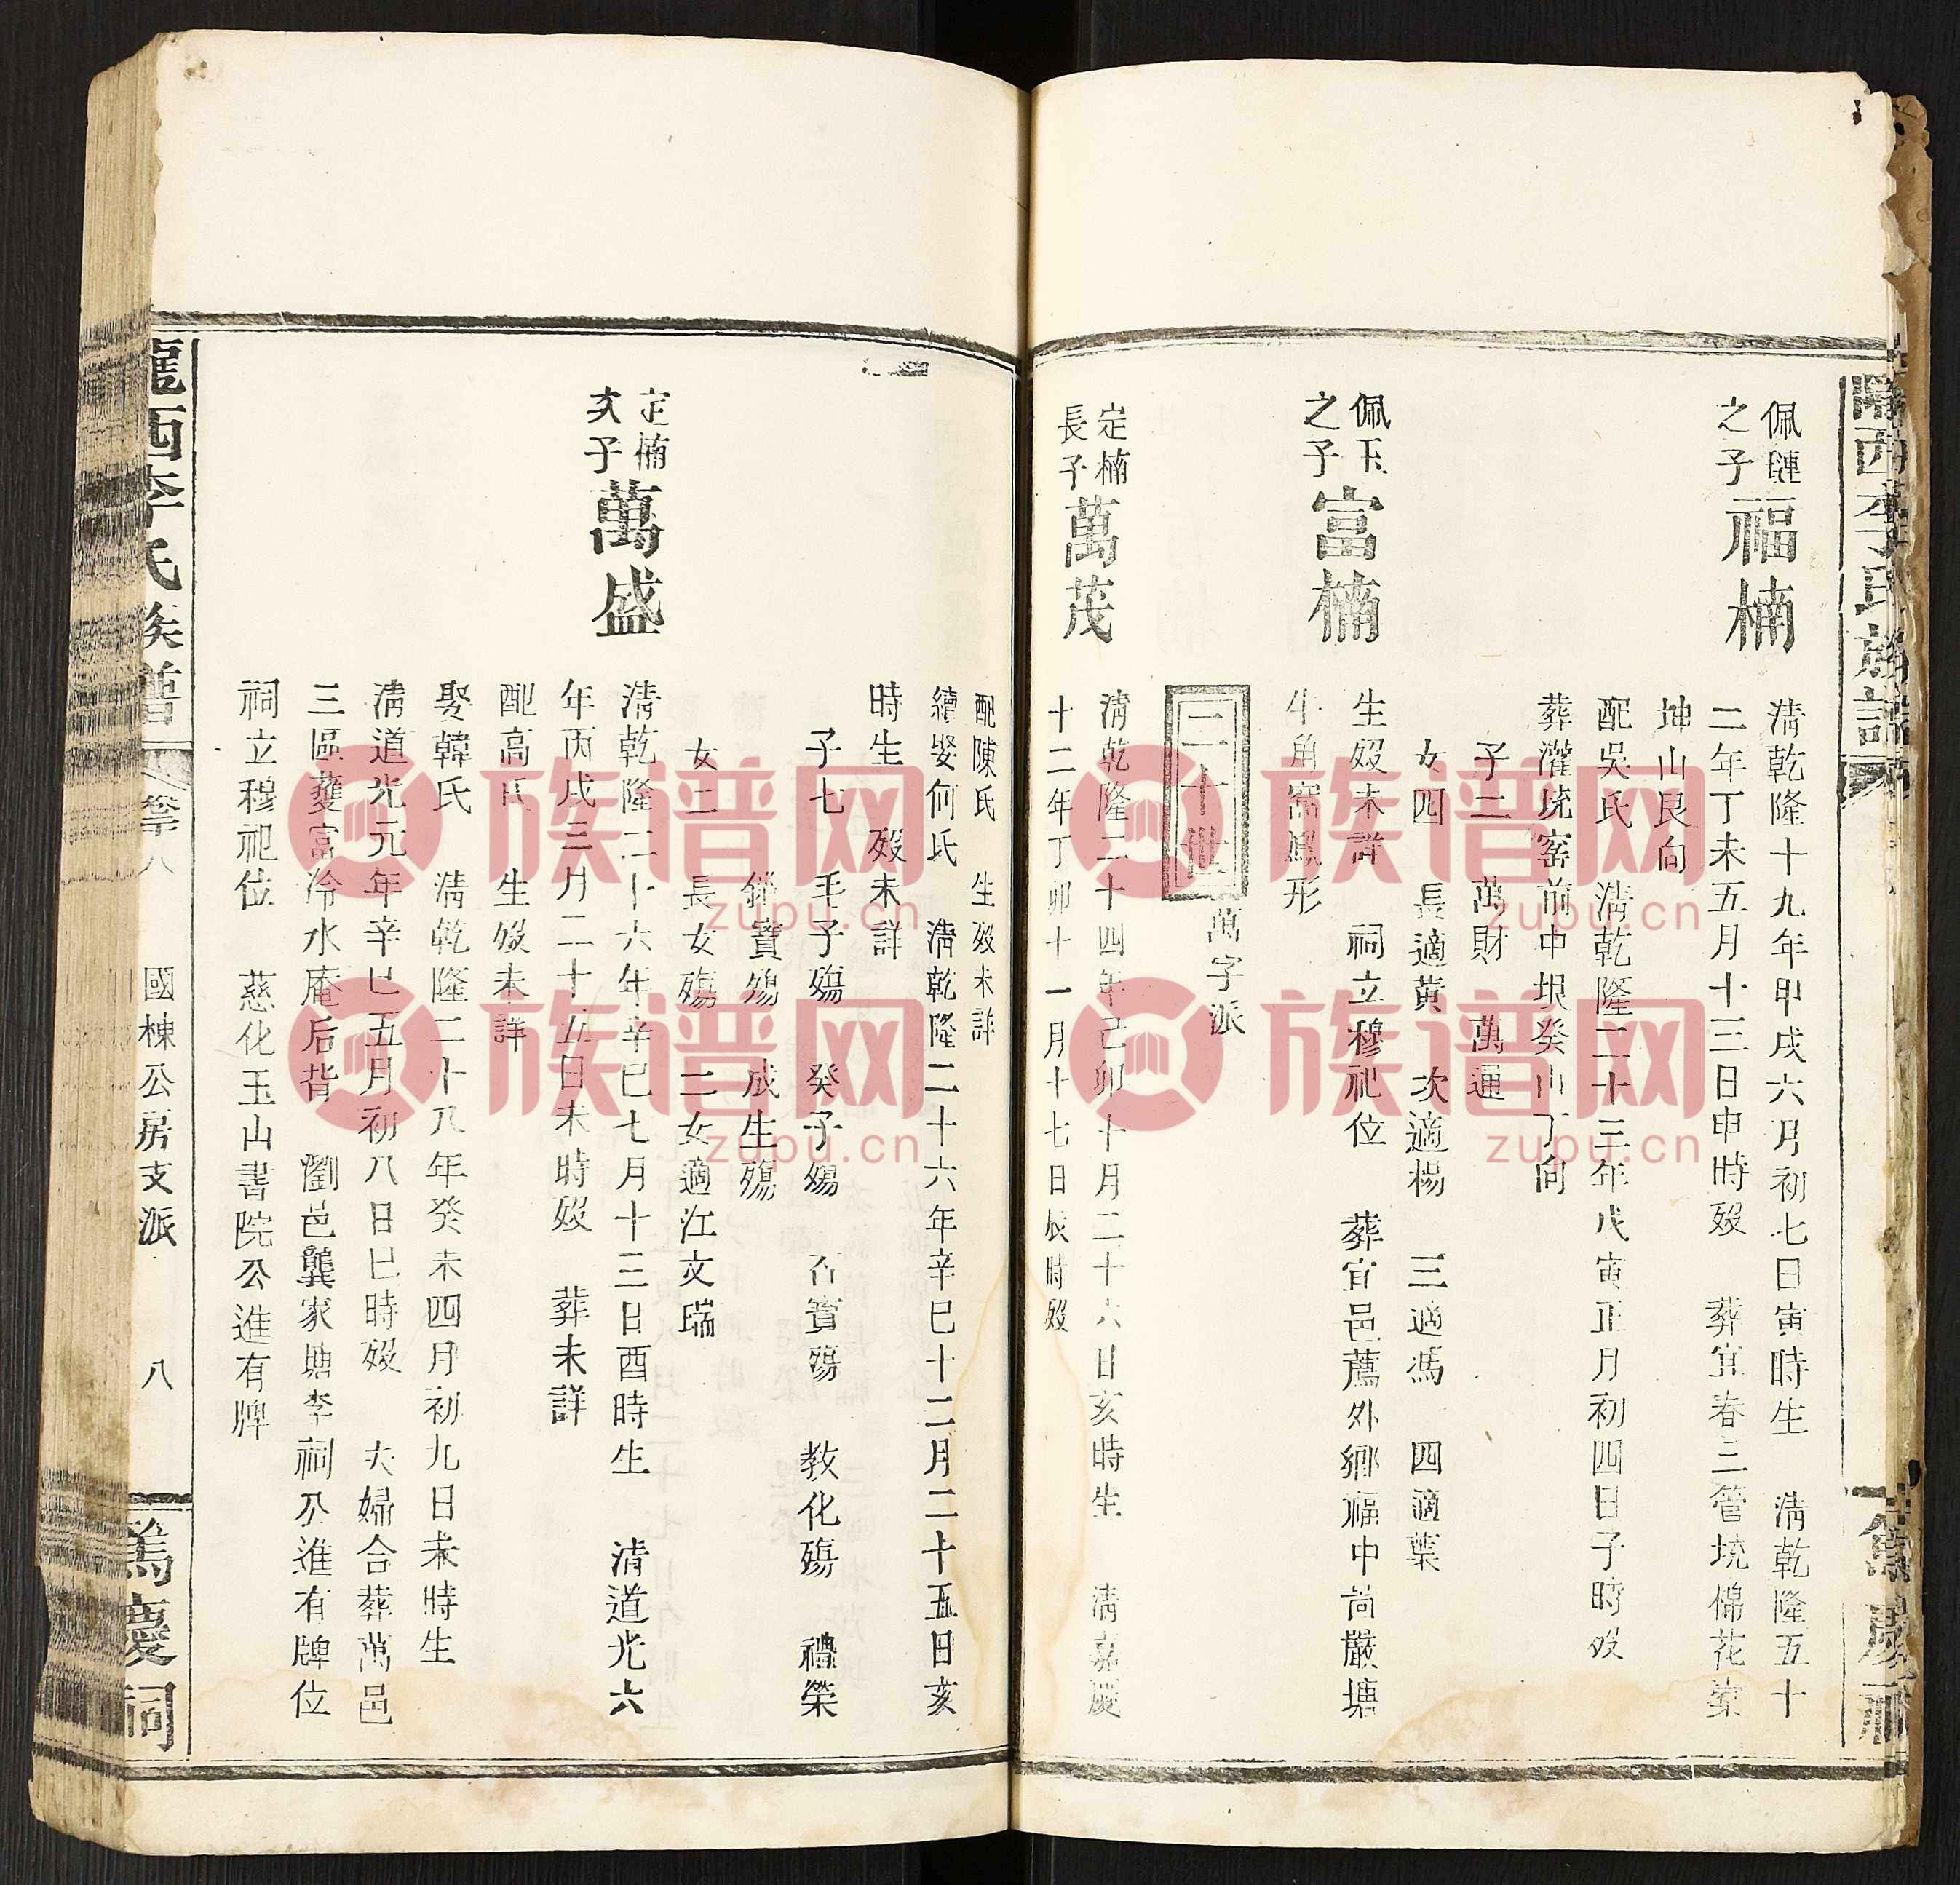 隴西李氏族譜
佩璉
之子
福楠
清乾隆十九年甲戌六月初七日寅時生 清乾隆五十
二年丁未五月十三日申時歿 葬宜春三管境棉花
坤山艮向
配吳氏 清乾隆二十三年戊寅正月初四日子時歿
葬灌境窑前中垠癸山丁向
子二 萬財 萬通
女四 長適黃 次適楊 三適馮 四適葉
佩玉
之子
富楠
生歿未詳 祠立穆祀位 葬宜邑薦外鄉福中尚嚴塘
牛角窩鳳形
二十世
萬字派
定楠
長子
萬茂
清乾隆二十四年己卯十月二十六日亥時生 清嘉慶
十二年丁卯十一月十七日辰時歿
配陳氏 生歿未詳
續娶何氏 清乾隆二十六年辛巳十二月二十五日亥
時生 歿未詳
子七 毛子殤 癸子殤 召寶殤 教化殤 禮榮
寶殤 成生殤
女二 長女殤 二女適江文瑞
定楠
次子
萬盛
清乾隆二十六年辛巳七月十三日酉時生 清道光六
年丙戌三月二十五日未時歿 葬未詳
配高氏 生歿未詳
娶韓氏 清乾隆二十八年癸未四月初九日未時生
清道光元年辛巳五月初八日巳時歿 夫婦合葬萬邑
三區藁富冷水庵后背 瀏邑龔家塘李祠公進有牌位
祠立穆祀位 慈化玉山書院公進有牌
隴西李氏族譜
卷 八
國棟公房支派
八
篤慶祠
族谱网
zupu.cn
族谱网
zupu.cn
族谱网
zupu.cn
族谱网
zupu.cn